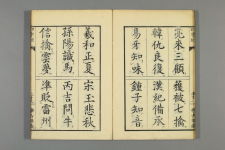 亮來三顧 獲被七擒
韓仇良復 漢紀備承
易牙知味 鍾子知音
羲和正夏 宋玉悲秋
孫陽識馬 丙吉問牛
信擒雲夢 準貶雷州